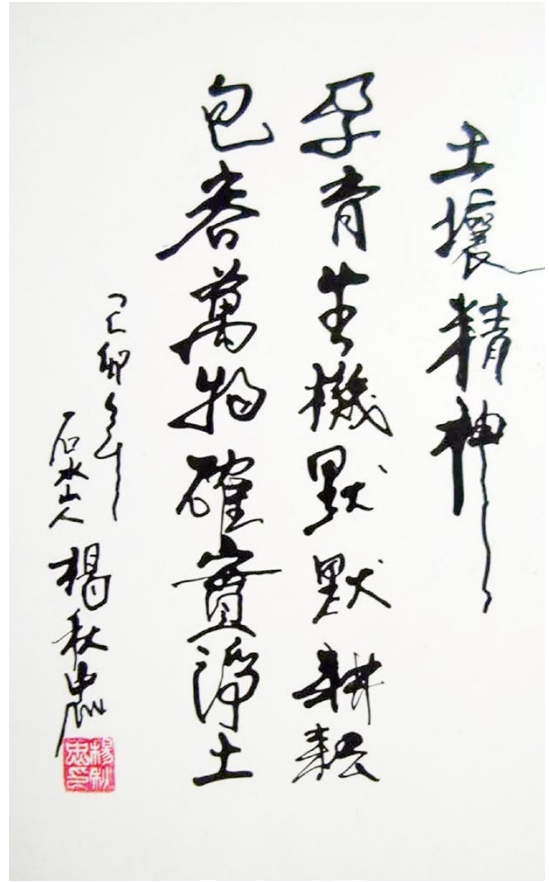 土壤精神
孕育生機默默耕耘
包容萬物確實淨土
己卯年
石水山人 楊秋忠
楊秋忠印